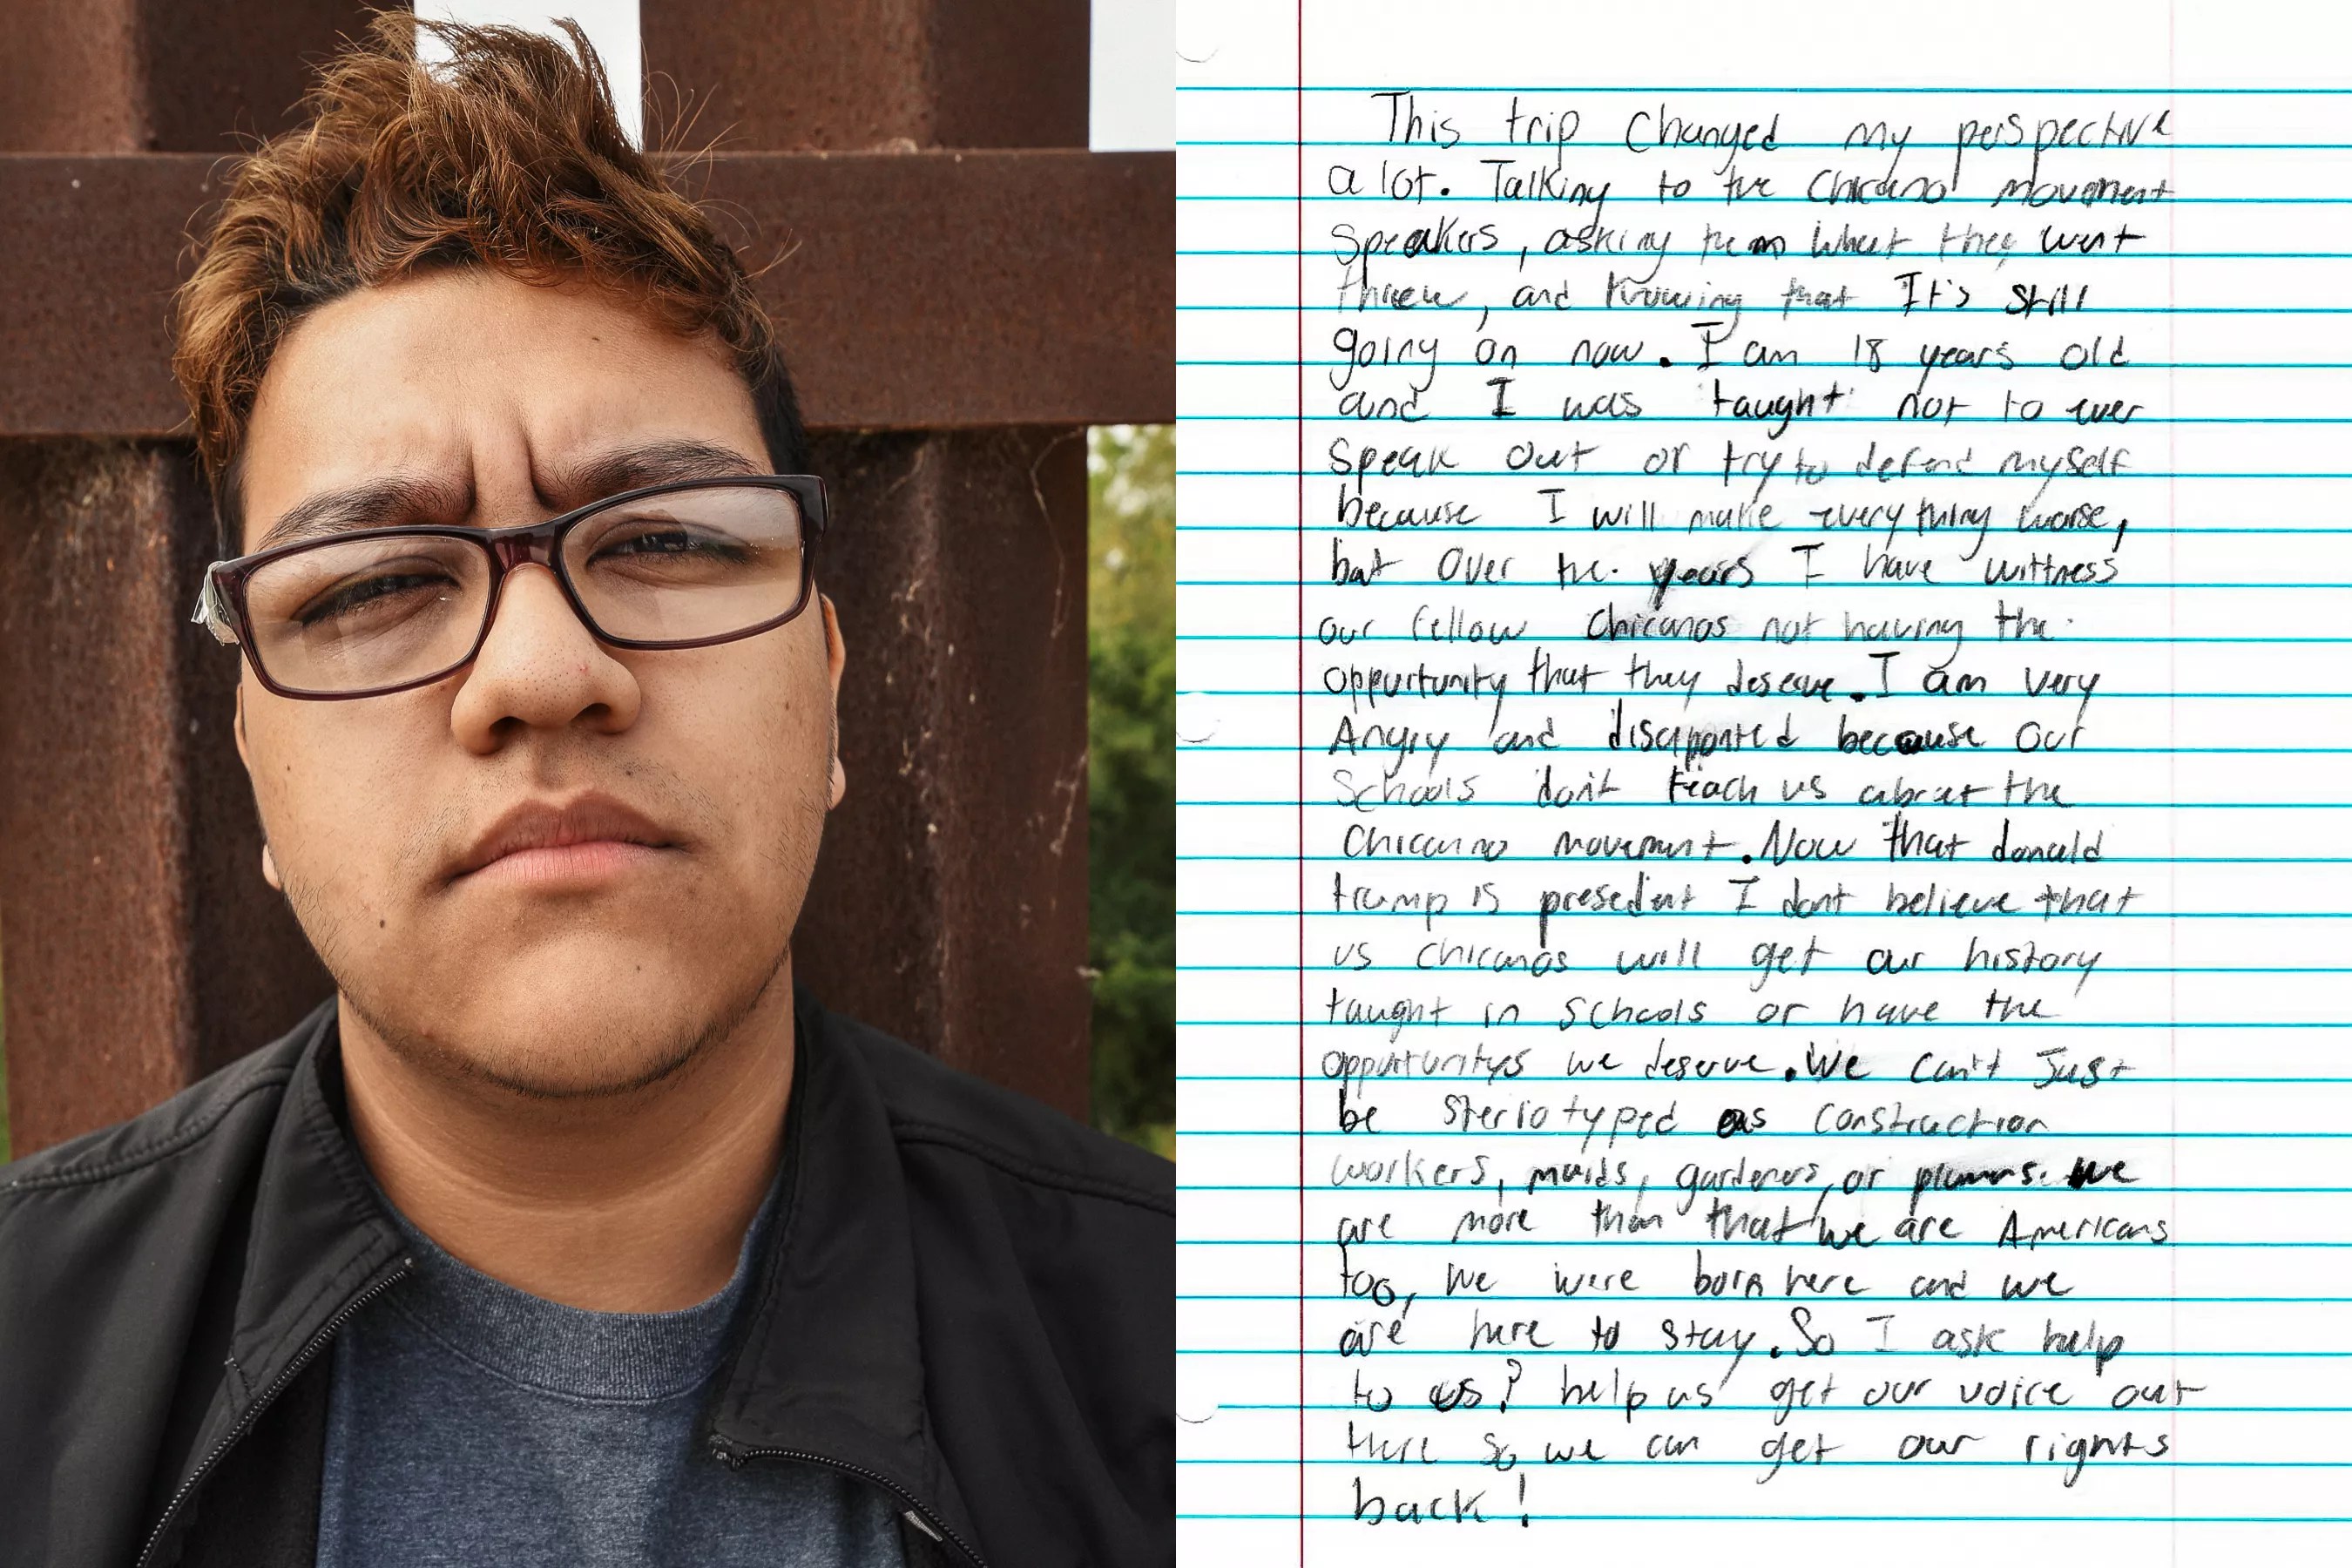 This trip changed my perspective
a lot. Talking to the Chicano movement
Speakers, asking them what they went
threw, and knowing that It's still
going on now. I am 18 years old
and I was taught not to ever
speak out or try to defend myself
because I will make everything worse,
but over the years I have wittness
our fellow Chicanos not having the
oppurtunity that they deserve. I am very
Angry and disapponted because our
Schools don't teach us about the
Chicano movement. Now that donald
trump is presedent I dont believe that
us chicanos will get our history
taught in schools or have the
oppurtunitys we deserve. We can't Just
be steriotyped as construction
workers, maids, gardeners, or We
are more than that we are Americans
too, we were born here and we
are here to stay. So I ask help
to us? help us get our voice out
there so we can get our rights
back!